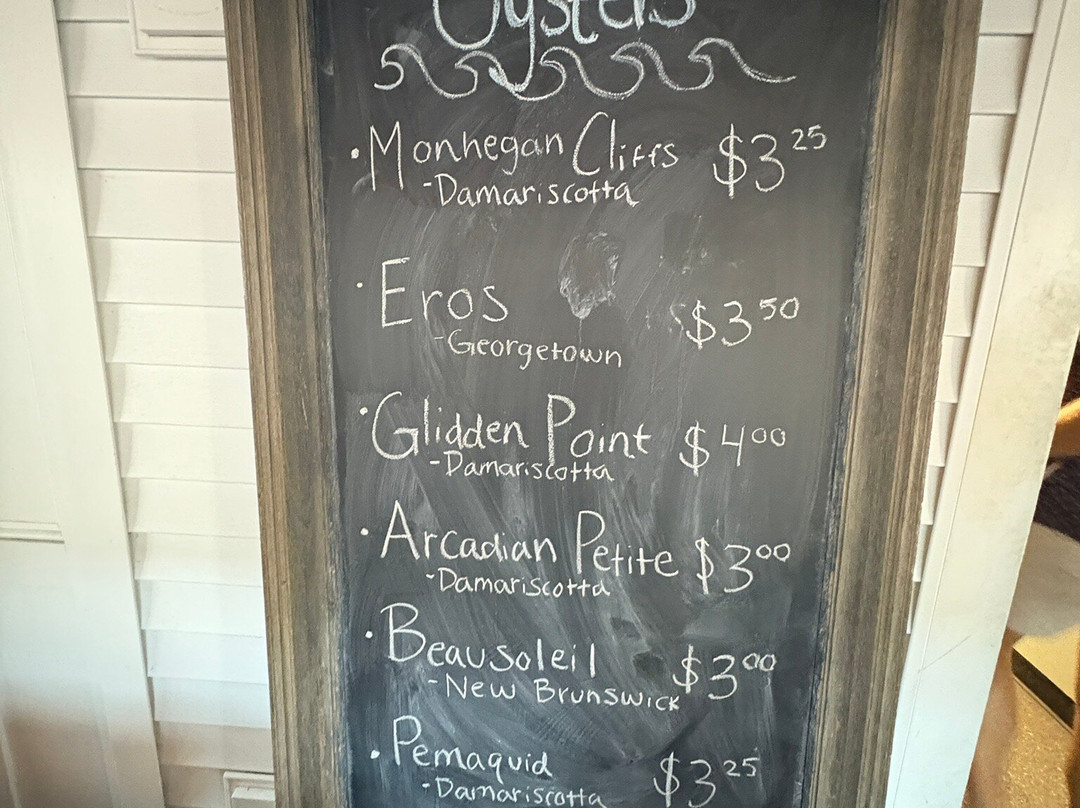 Oysters
• Monhegan Cliffs $3 25
- Damariscotta
• Eros $3 50
- Georgetown
• Glidden Point $4 00
- Damariscotta
• Arcadian Petite $3 00
- Damariscotta
• Beausoleil $3 00
- New Brunswick
• Pemaquid $3 25
- Damariscotta